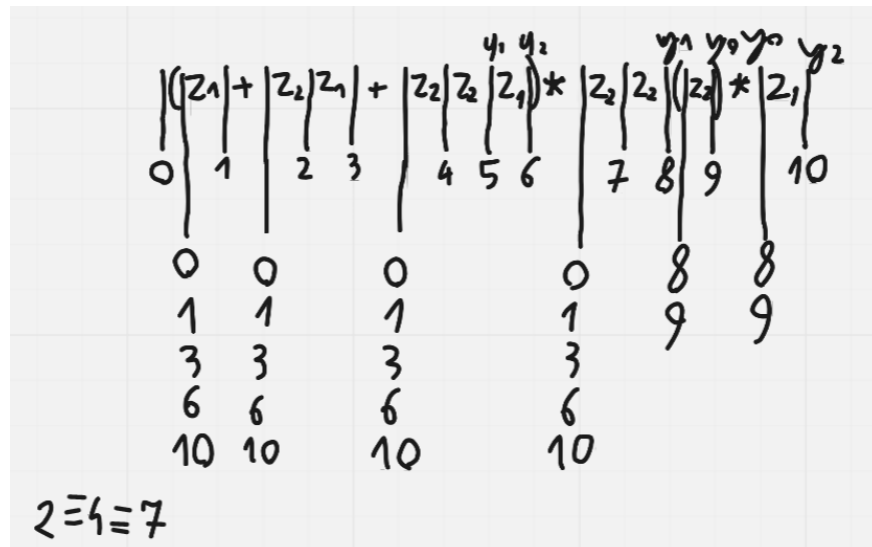 y₁ y₂ y₁ y₀ y₀ y₂
|(|z₁|+|z₂|z₁|+|z₂|z₂|z₁|)*|z₂|z₂|(|z₂|)*|z₁|
0 1 2 3 4 5 6 7 8 9 10
0 0 0 0 8 8
1 1 1 1 9 9
3 3 3 3
6 6 6 6
10 10 10 10
2≡4≡7